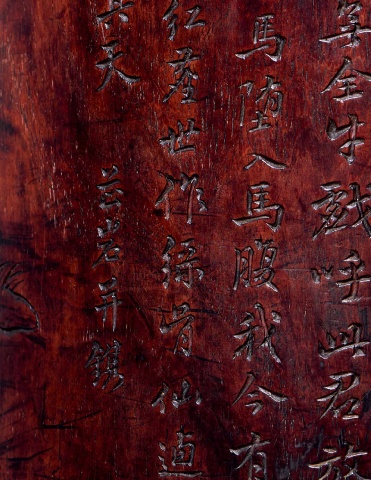 無全牛戲呼此君放
馬墮入馬腹我今有
紅塵世作綠骨仙連
共天
芸岩并鐫